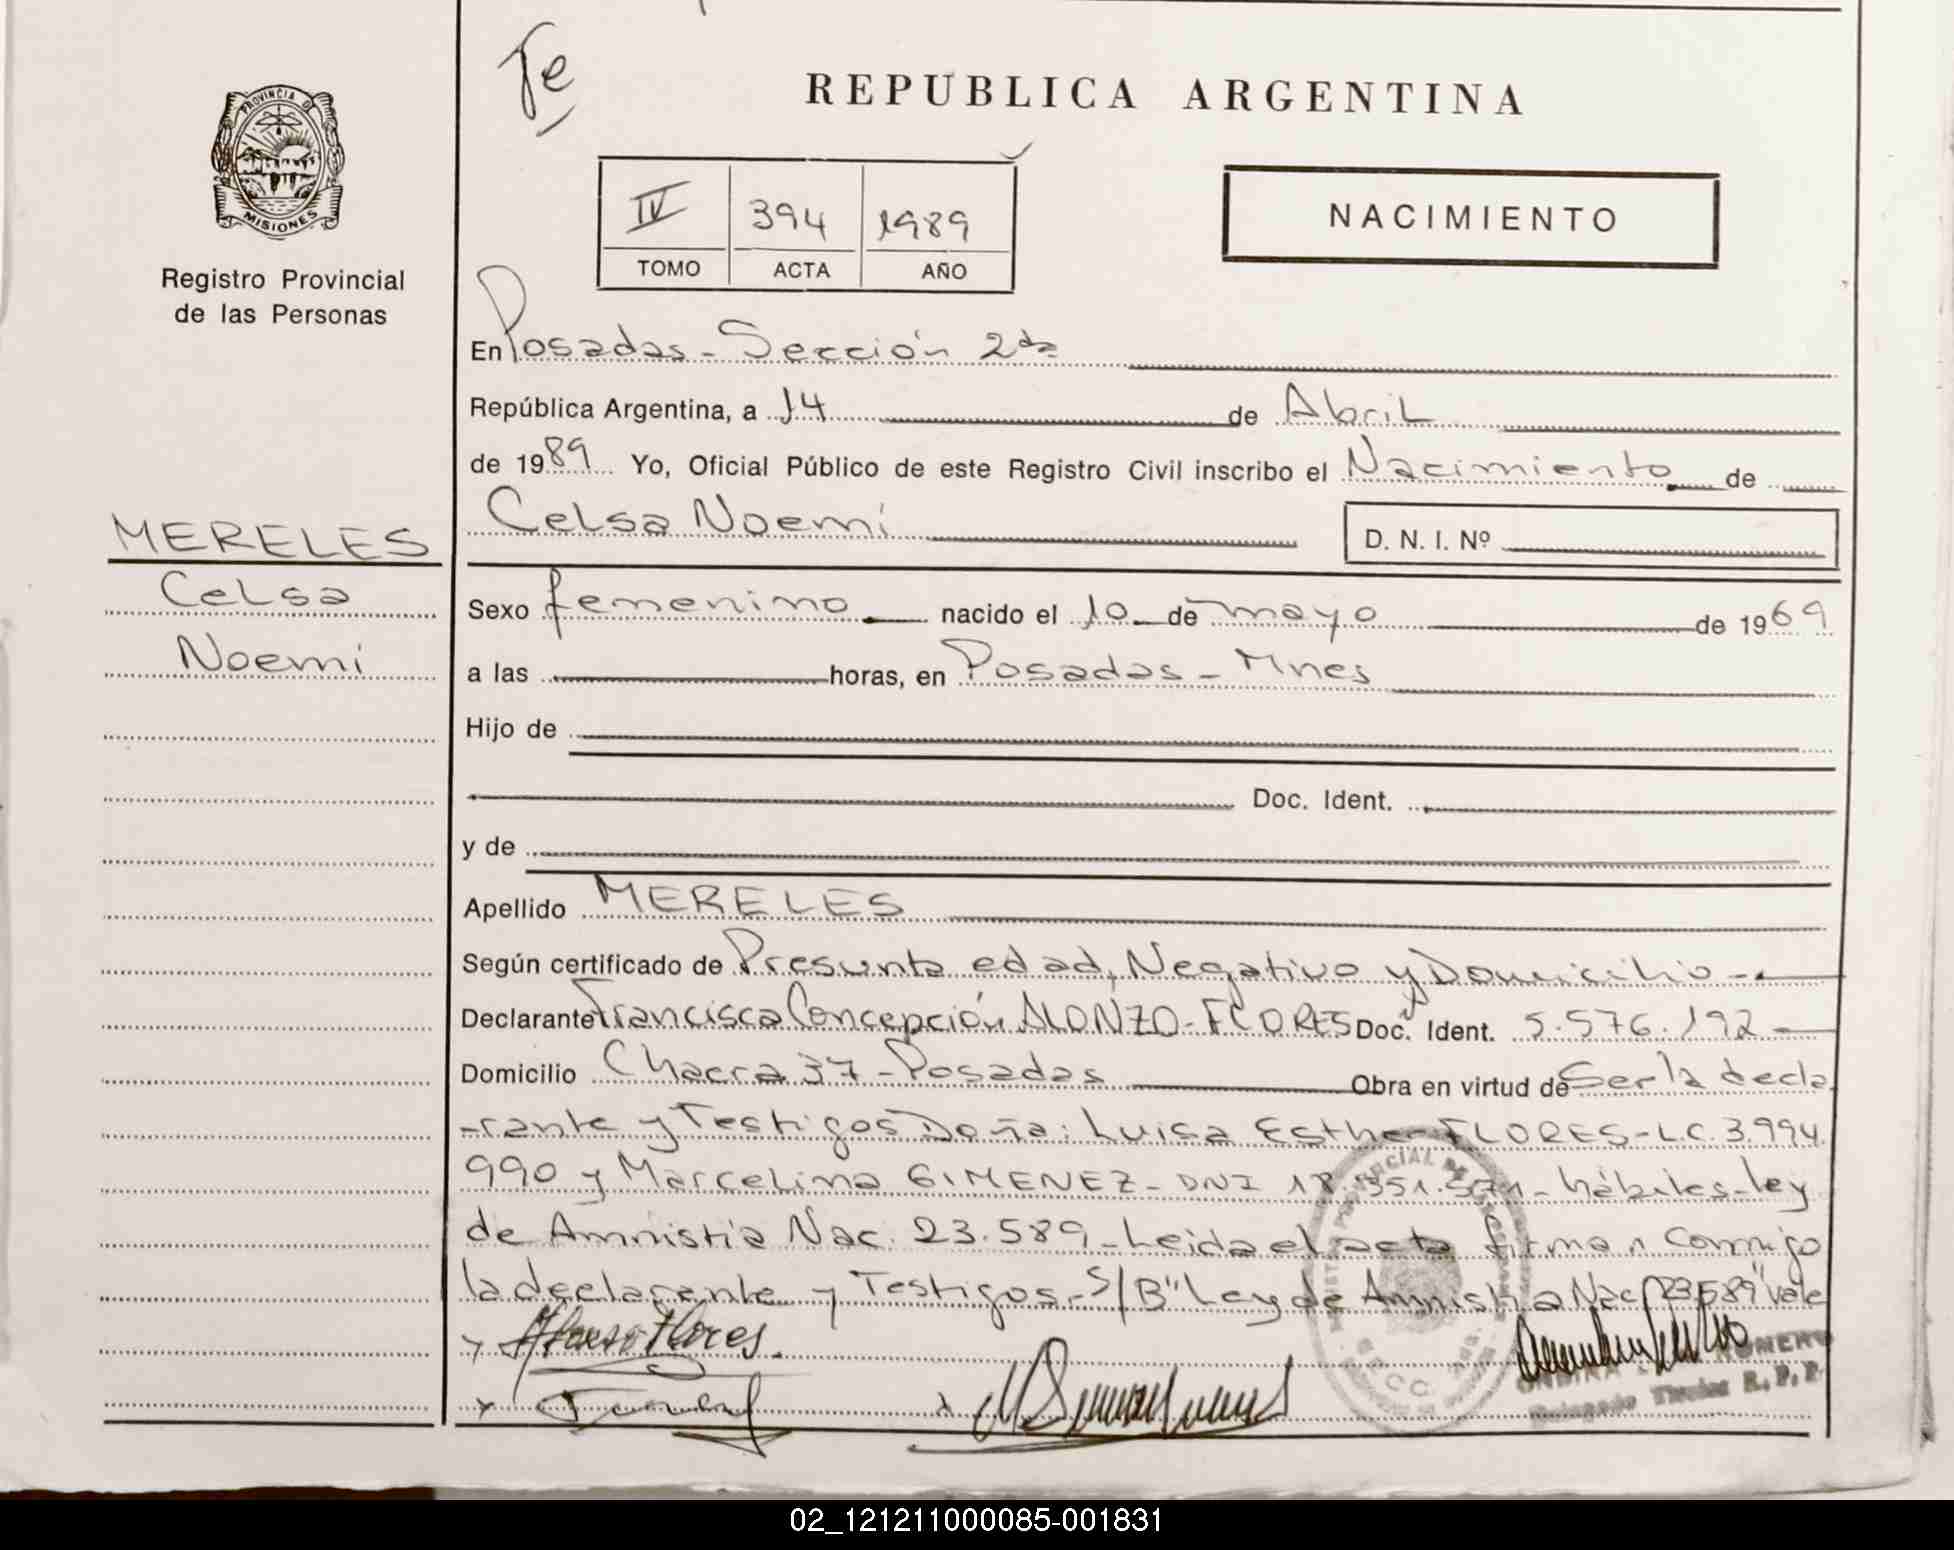 Te
REPUBLICA ARGENTINA
PROVINCIA D
MISIONES
IV 394 1989
TOMO ACTA AÑO
NACIMIENTO
Registro Provincial
de las Personas
En Posadas - Sección 2da
República Argentina, a 14 de Abril
de 1989 Yo, Oficial Público de este Registro Civil inscribo el Nacimiento de
Celsa Noemí
D. N. I. Nº
MERELES
Celsa
Noemí
Sexo femenino nacido el 10 de mayo de 1969
a las horas, en Posadas - Mnes
Hijo de
Doc. Ident.
y de
Apellido MERELES
Según certificado de Presunta edad, Negativo y Domicilio -
Declarante Francisca Concepción ALONZO - FLORES Doc. Ident. 5.576.192 -
Domicilio Chacra 37 - Posadas Obra en virtud de Ser la decla
-rante y Testigos Doña: Luisa Esther FLORES - L.C. 3.994.
990 y Marcelina GIMENEZ - DNI 18.351.571 - hábiles - ley
de Amnistia Nac. 23.589 - Leida el acta firman conmigo
la declarante y Testigos - S/B "Ley de Amnistia Nac 23.589" vale
Flores.
ROMERO
Delegado Titular R. P. P.
02_121211000085-001831